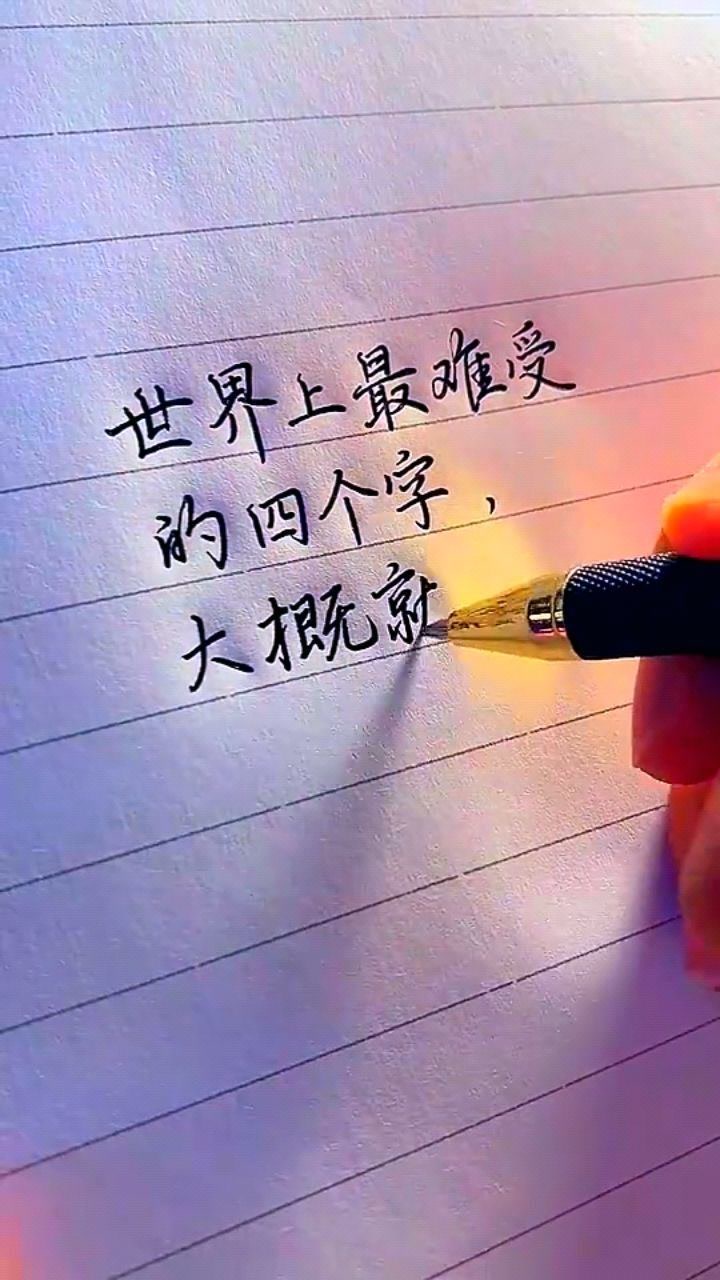 世界上最难受
的四个字，
大概就